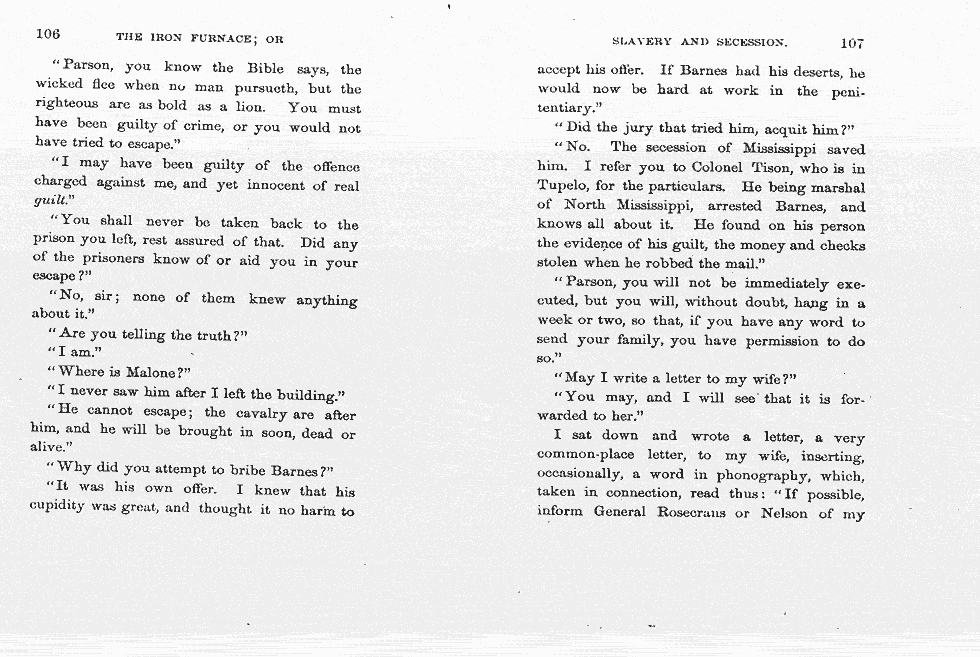 106 THE IRON FURNACE; OR
"Parson, you know the Bible says, the
wicked flee when no man pursueth, but the
righteous are as bold as a lion. You must
have been guilty of crime, or you would not
have tried to escape."
"I may have been guilty of the offence
charged against me, and yet innocent of real
guilt."
"You shall never be taken back to the
prison you left, rest assured of that. Did any
of the prisoners know of or aid you in your
escape?"
"No, sir; none of them knew anything
about it."
"Are you telling the truth?"
"I am."
"Where is Malone?"
"I never saw him after I left the building."
"He cannot escape; the cavalry are after
him, and he will be brought in soon, dead or
alive."
"Why did you attempt to bribe Barnes?"
"It was his own offer. I knew that his
cupidity was great, and thought it no harm to
SLAVERY AND SECESSION. 107
accept his offer. If Barnes had his deserts, he
would now be hard at work in the peni-
tentiary."
"Did the jury that tried him, acquit him?"
"No. The secession of Mississippi saved
him. I refer you to Colonel Tison, who is in
Tupelo, for the particulars. He being marshal
of North Mississippi, arrested Barnes, and
knows all about it. He found on his person
the evidence of his guilt, the money and checks
stolen when he robbed the mail."
"Parson, you will not be immediately exe-
cuted, but you will, without doubt, hang in a
week or two, so that, if you have any word to
send your family, you have permission to do
so."
"May I write a letter to my wife?"
"You may, and I will see that it is for-
warded to her."
I sat down and wrote a letter, a very
common-place letter, to my wife, inserting,
occasionally, a word in phonography, which,
taken in connection, read thus: "If possible,
inform General Rosecrans or Nelson of my